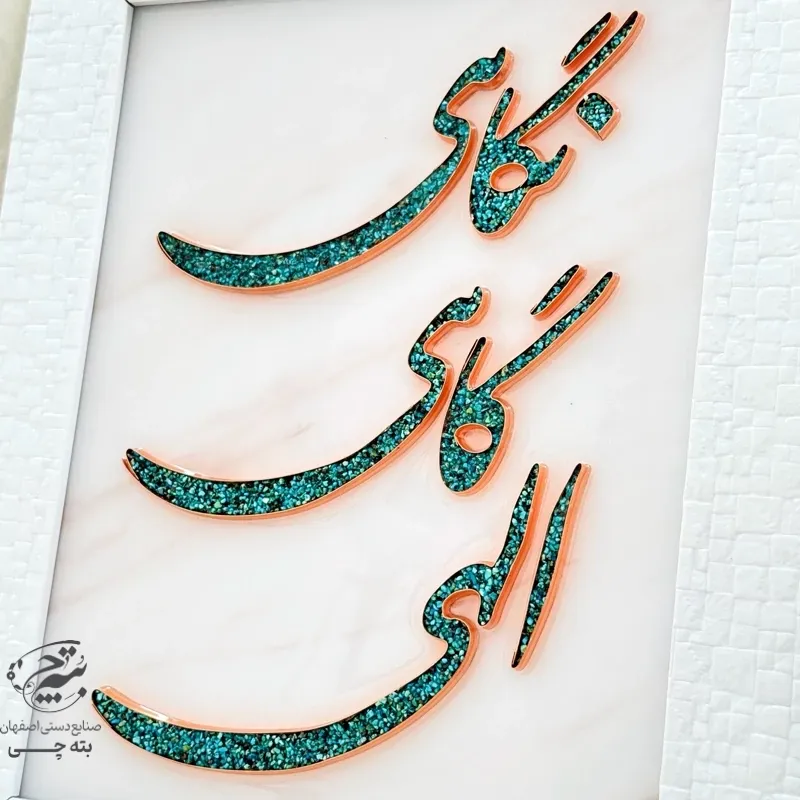 نگاهی
گاهی
الهی
بته چی
صنایع دستی اصفهان
بته چی